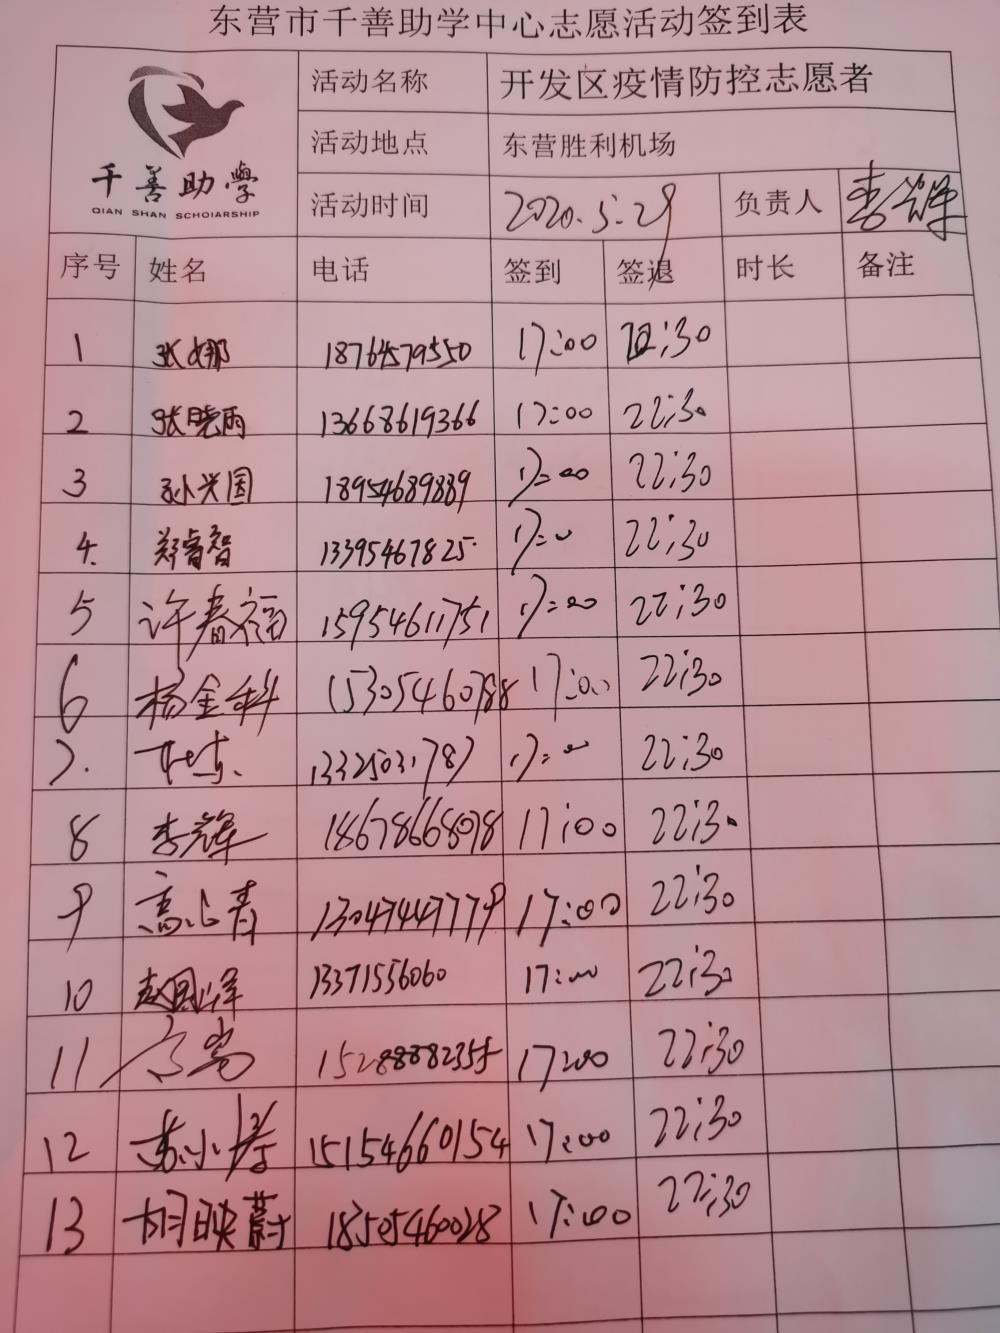 东营市千善助学中心志愿活动签到表
千善助學
QIAN SHAN SCHOIARSHIP
活动名称 开发区疫情防控志愿者
活动地点 东营胜利机场
活动时间 2020.5.29 负责人 李辉
序号 姓名 电话 签到 签退 时长 备注
1 张娜 18764579550 17:00 22:30
2 张晓雨 13668619366 17:00 22:30
3 孙兴国 18954689889 17:00 22:30
4. 郑睿智 13395467825 17:00 22:30
5 许春福 15954611751 17:00 22:30
6 杨金科 15305460788 17:00 22:30
7. 13325031787 17:00 22:30
8 李辉 18678666898 17:00 22:30
9 高心青 13047447779 17:00 22:30
10 赵国洋 13371556060 17:00 22:30
11 17:00 22:30
12 苏小涛 15154660154 17:00 22:30
13 胡映蔚 18505460028 17:00 22:30